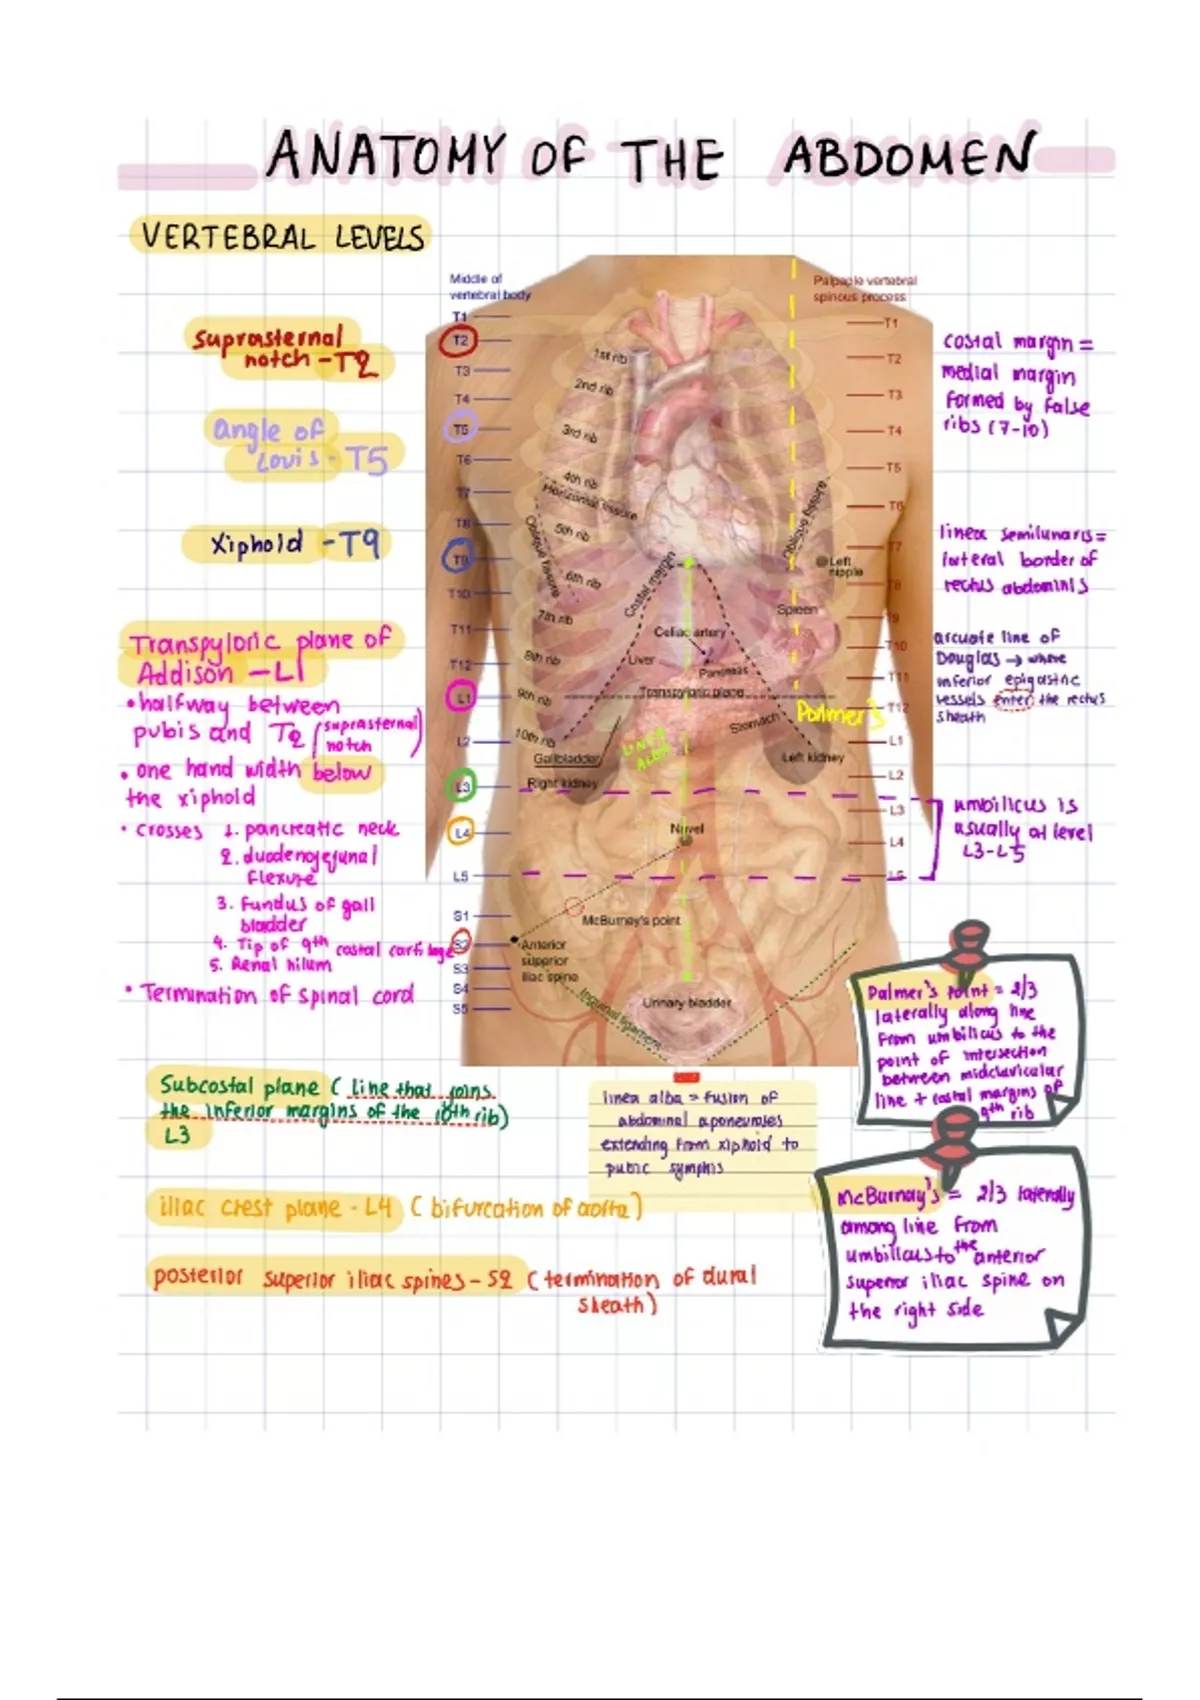 ANATOMY OF THE ABDOMEN
VERTEBRAL LEVELS
Suprasternal
notch - T2
angle of
Louis - T5
Xiphoid - T9
Transpyloric plane of
Addison - L1
• halfway between
pubis and T2 (suprasternal
notch)
• one hand width below
the xiphoid
• crosses 1. pancreatic neck
2. duodenojejunal
flexure
3. Fundus of gall
bladder
4. Tip of 9th costal cartilage
5. Renal hilum
• Termination of spinal cord
Middle of
vertebral body
T1
T2
T3
T4
T5
T6
T7
T8
T9
T10
T11
T12
L1
L2
L3
L4
L5
S1
S2
S3
S4
S5
1st rib
2nd rib
3rd rib
4th rib
Horizontal fissure
Oblique fissure
5th rib
6th rib
7th rib
8th rib
9th rib
10th rib
Costal margin
Oblique fissure
Left
nipple
Spleen
Celiac artery
Liver
Pancreas
Transpyloric plane
Stomach
Palmer's
LINEA
ALBA
Gallbladder
Left kidney
Right kidney
Navel
McBurney's point
Anterior
superior
iliac spine
Inguinal ligament
Urinary bladder
Palpable vertebral
spinous process
T1
T2
T3
T4
T5
T6
T7
T8
T9
T10
T11
T12
L1
L2
L3
L4
L5
costal margin =
medial margin
formed by false
ribs (7-10)
linea semilunaris =
lateral border of
rectus abdominis
arcuate line of
Douglas → where
inferior epigastric
vessels enter the rectus
sheath
umbilicus is
usually at level
L3-L5
Palmer's Point = 2/3
laterally along line
from umbilicus to the
point of intersection
between midclavicular
line + costal margins of
9th rib
Subcostal plane ( line that joins
the inferior margins of the 10th rib)
L3
linea alba = fusion of
abdominal aponeuroses
extending from xiphoid to
pubic symphis
McBurnay's = 2/3 laterally
among line from
umbilicus to the anterior
superior iliac spine on
the right side
iliac crest plane - L4 ( bifurcation of aorta)
posterior superior iliac spines - S2 ( termination of dural
sheath)